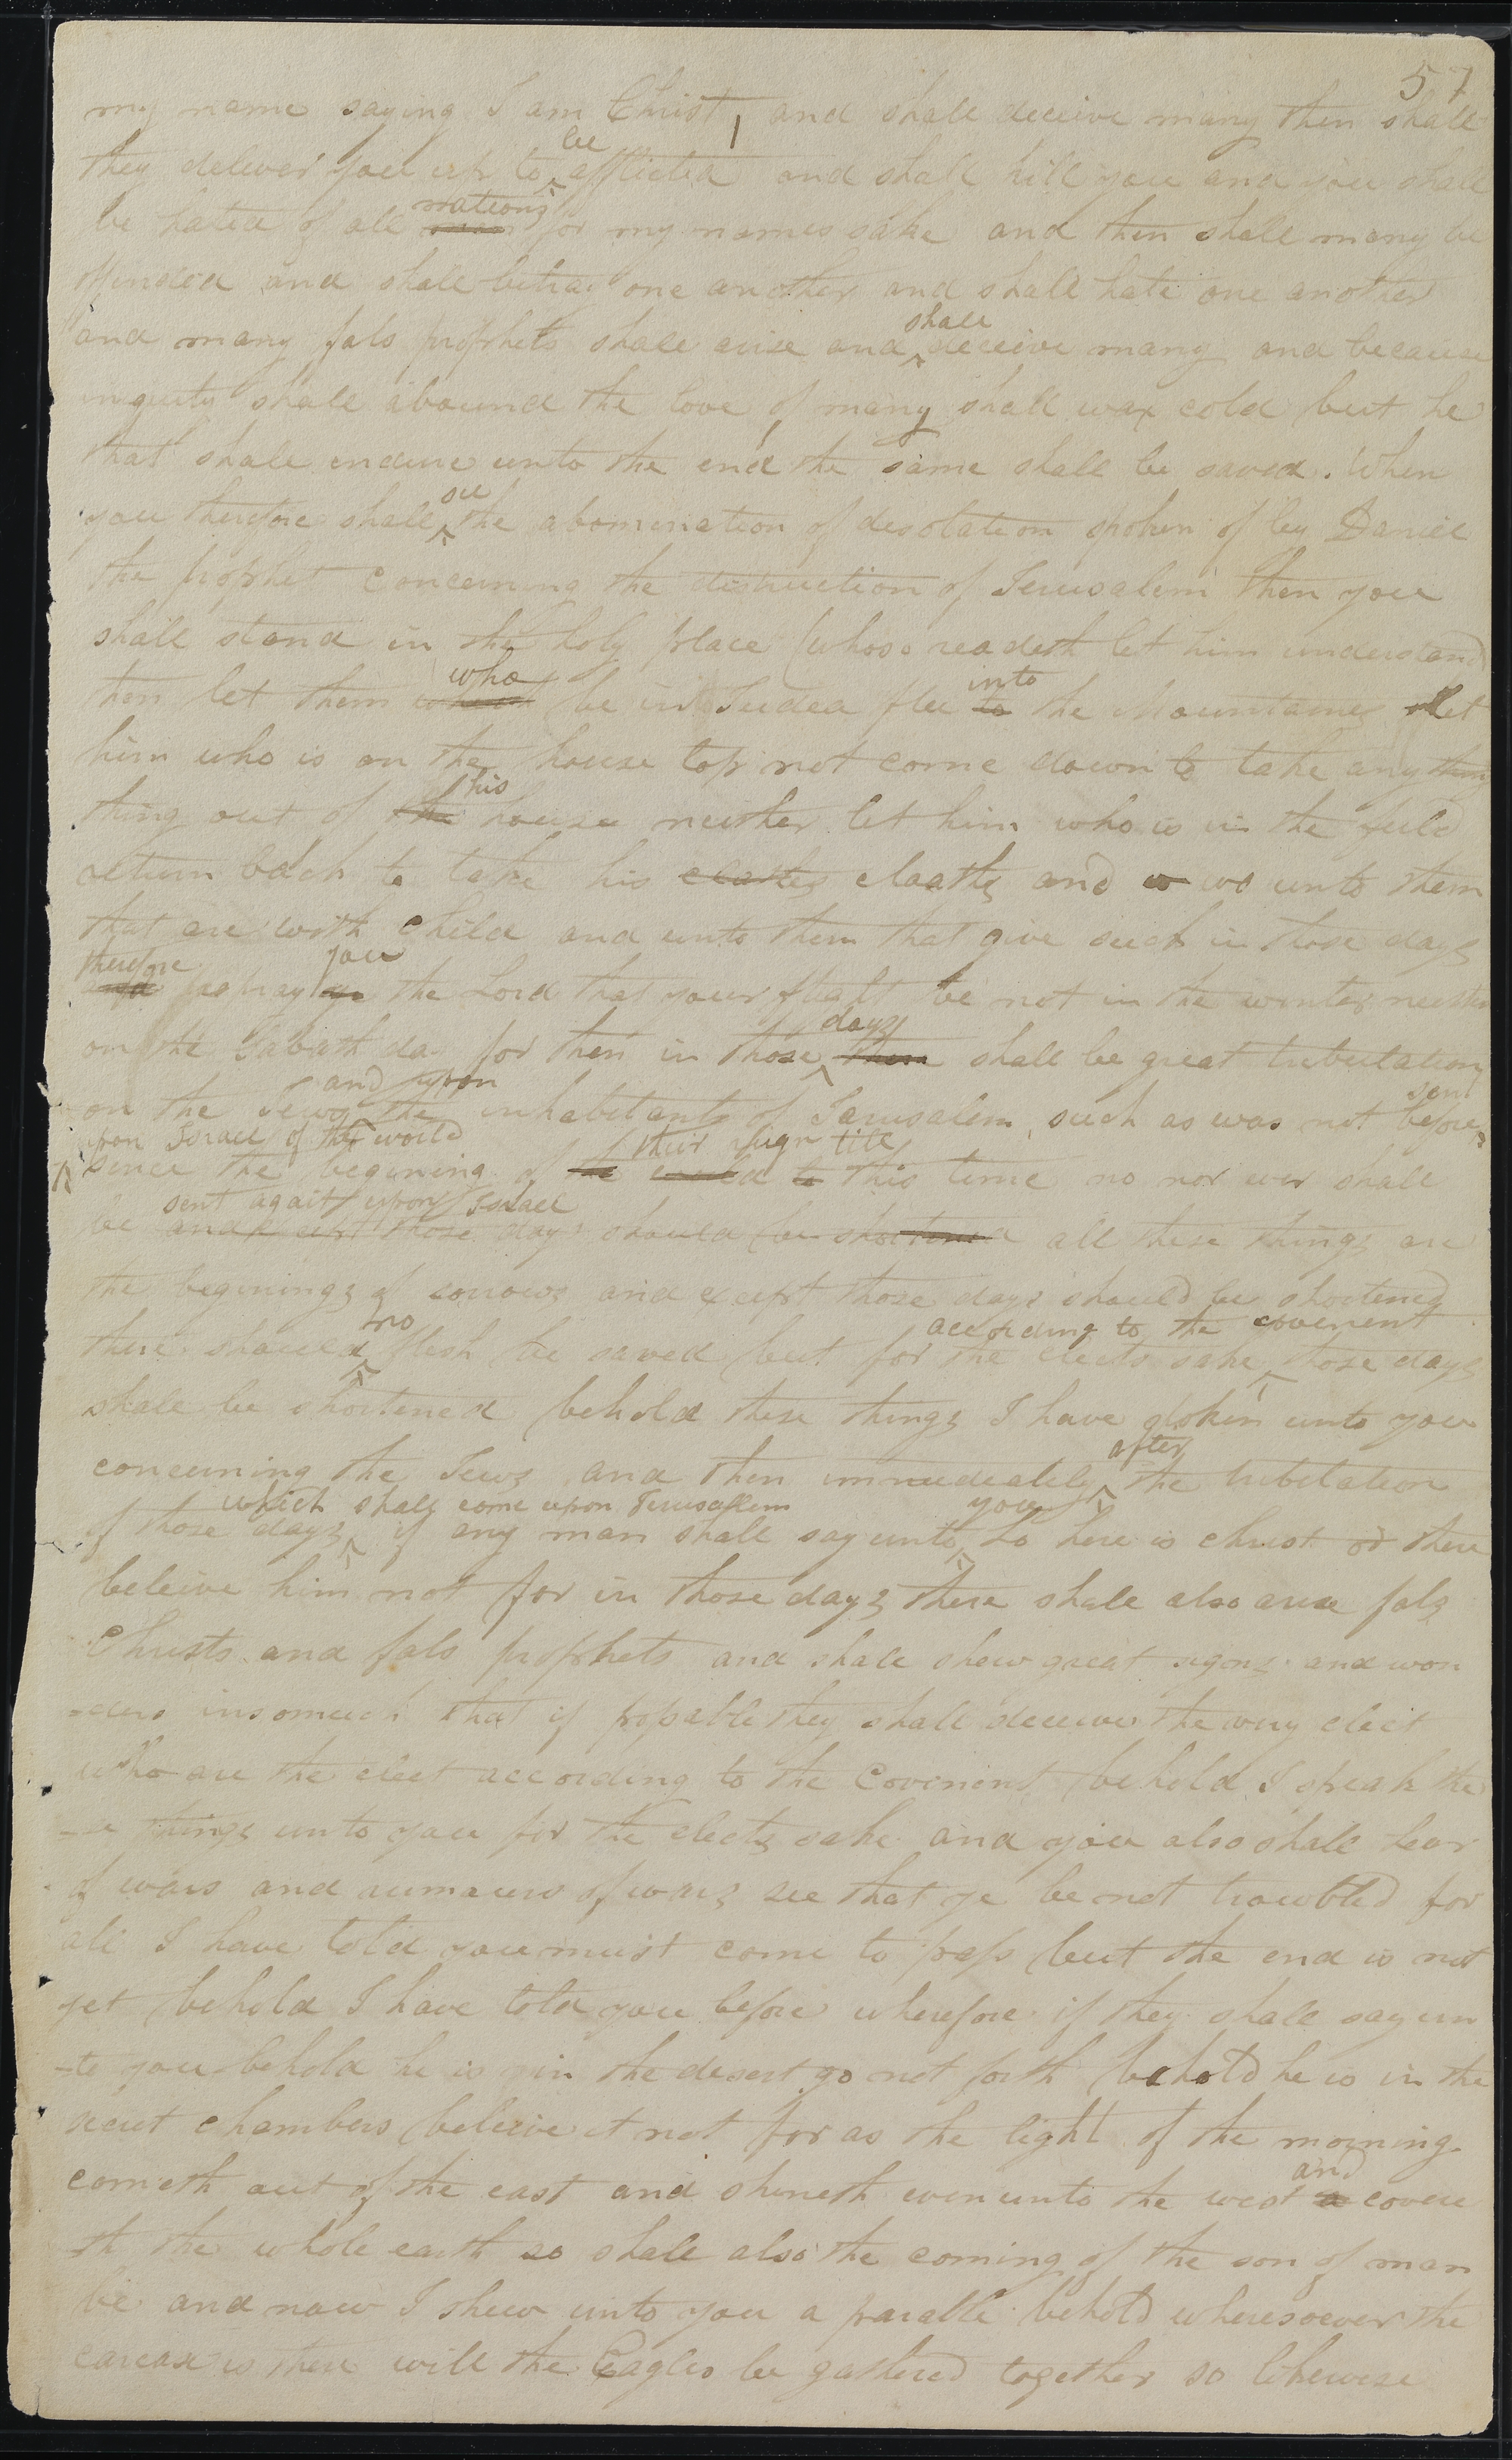 57
my name saying I am Christ, and shall deceive many then shall
be
they deliver you up to afflicted and shall kill you and you shall
nations
be hated of all men for my names sake and then shall many be
offended and shall betray one another and shall hate one another
shall
and many fals prophets shall arise and deceive many and because
iniquity shall abound the love of many shall wax cold but he
that shall endure unto the end the same shall be saved. When
see
you therefore shall the abomination of desolation spoken of by Daniel
the prophet concerning the distruction of Jerusalem then you
shall stand in the holy place (whoso readeth let him understand
who into
then let them be in Judea flee to the Mountains let
him who is on the house top not come down to take any thing
his
thing out of the house neither let him who is in the field
return back to take his cloaths cloaths and w wo unto them
that are with child and unto them that give suck in those days
therefore you
and pray ye the Lord that your flight be not in the winter neither
days
on the Sabath day for then in those them shall be great tribulation
and upon sent
on the Jews the inhabitants of Jerusalem, such as was not before
upon Israel of the world their reign till
sence the begining of the to this time no nor ever shall
sent again upon Israel
be and except those days should be shortened all these things are
the beginings of sorrows and except those days should be shortened
no according to the covenent
there should flesh be saved but for the elects sake those days
shall be shortened behold these things I have spoken unto you
after
concerning the Jews and then immediately the tribulation
which shall come upon Jerusalem you
of those days if any man shall say unto Lo here is christ or there
beleive him not for in those days there shall also arise fals
Christs and fals prophets and shall shew great signs and won
-ders insomuch that if possable they shall deceive the very elect
who are the elect according to the Covenent behold I speak the
-se things unto you for the elects sake and you also shall hear
of wars and rumours of wars see that ye be not troubled for
all I have told you must come to pass but the end is not
yet behold I have told you before wherefore if they shall say un
-to you behold he is in the desert go not forth behold he is in the
secret chambers beleive it not for as the light of the morning
and
cometh out of the east and shineth even unto the west a covere
th the whole earth so shall also the coming of the son of man
be and now I shew unto you a parable behold wheresoever the
carcase is there will the Eagles be gathered together so likewise